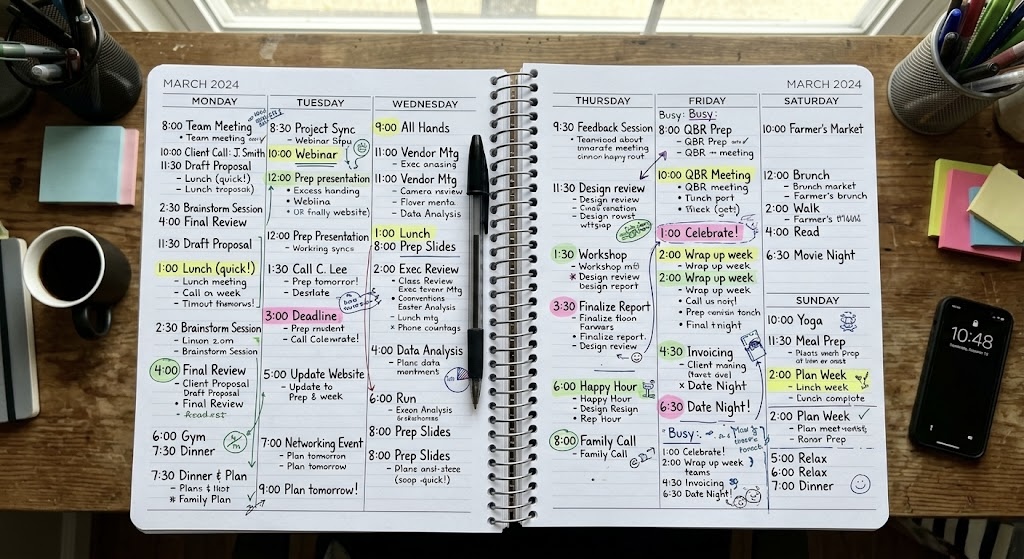 MARCH 2024
MONDAY
8:00 Team Meeting
• Team meeting
10:00 Client Call: J. Smith
11:30 Draft Proposal
- Lunch (quick!)
- Lunch
2:30 Brainstorm Session
4:00 Final Review
11:30 Draft Proposal
1:00 Lunch (quick!)
- Lunch meeting
- Call on week
- Timout
2:30 Brainstorm Session
- Brainstorm Session
4:00 Final Review
- Client Proposal
Draft Proposal
• Final Review
6:00 Gym
7:30 Dinner
7:30 Dinner & Plan
- Plans
* Family Plan
TUESDAY
8:30 Project Sync
- Webinar
10:00 Webinar
12:00 Prep presentation
• Excess handing
• Weblina
• OR finally website)
12:00 Prep Presentation
- Working syncs
1:30 Call C. Lee
- Prep tomorror!
- Desrlate
3:00 Deadline
- Prep
- Call
5:00 Update Website
- Update to
Prep & week
7:00 Networking Event
- Plan tomorron
- Plan tomorrow
9:00 Plan tomorrow!
WEDNESDAY
9:00 All Hands
11:00 Vendor Mtg
- Exec
11:00 Vendor Mtg
- Camera
- Flover menta
- Data Analysis
1:00 Lunch
8:00 Prep Slides
2:00 Exec Review
- Class Review
Exec Mtg
• Conventions
Easter Analysis
- Lunch mtg
× Phone
4:00 Data Analysis
- Planc data
6:00 Run
- Exeon Analysis
8:00 Prep Slides
8:00 Prep Slides
- Plans
(soop -quick!)
MARCH 2024
THURSDAY
9:30 Feedback Session
11:30 Design review
- Design review
- Design
1:30 Workshop
- Workshop
* Design review
Design report
3:30 Finalize Report
- Finalize
- Finalize report.
- Design review
6:00 Happy Hour
- Happy Hour
- Design Resign
- Rep Hour
8:00 Family Call
- Family Call
FRIDAY
Busy: Busy:
8:00 QBR Prep
- QBR Prep
- QBR meeting
10:00 QBR Meeting
• QBR meeting
• Tunch port
1:00 Celebrate!
2:00 Wrap up week
- Wrap up week
2:00 Wrap up week
- Wrap up week
• Call us
• Prep
• Final
4:30 Invoicing
- Client
× Date Night
6:30 Date Night!
Busy:
1:00 Celebrate!
2:00 Wrap up week
teams
4:30 Invoicing
6:30 Date Night!
SATURDAY
10:00 Farmer's Market
12:00 Brunch
- Brunch market
- Farmer's brunch
2:00 Walk
- Farmer's
4:00 Read
6:30 Movie Night
SUNDAY
10:00 Yoga
11:30 Meal Prep
- Prep
2:00 Plan Week
- Linch week
- Lunch complete
2:00 Plan Week ✓
- Plan
- Ronor Prep
5:00 Relax
6:00 Relax
7:00 Dinner
10:48